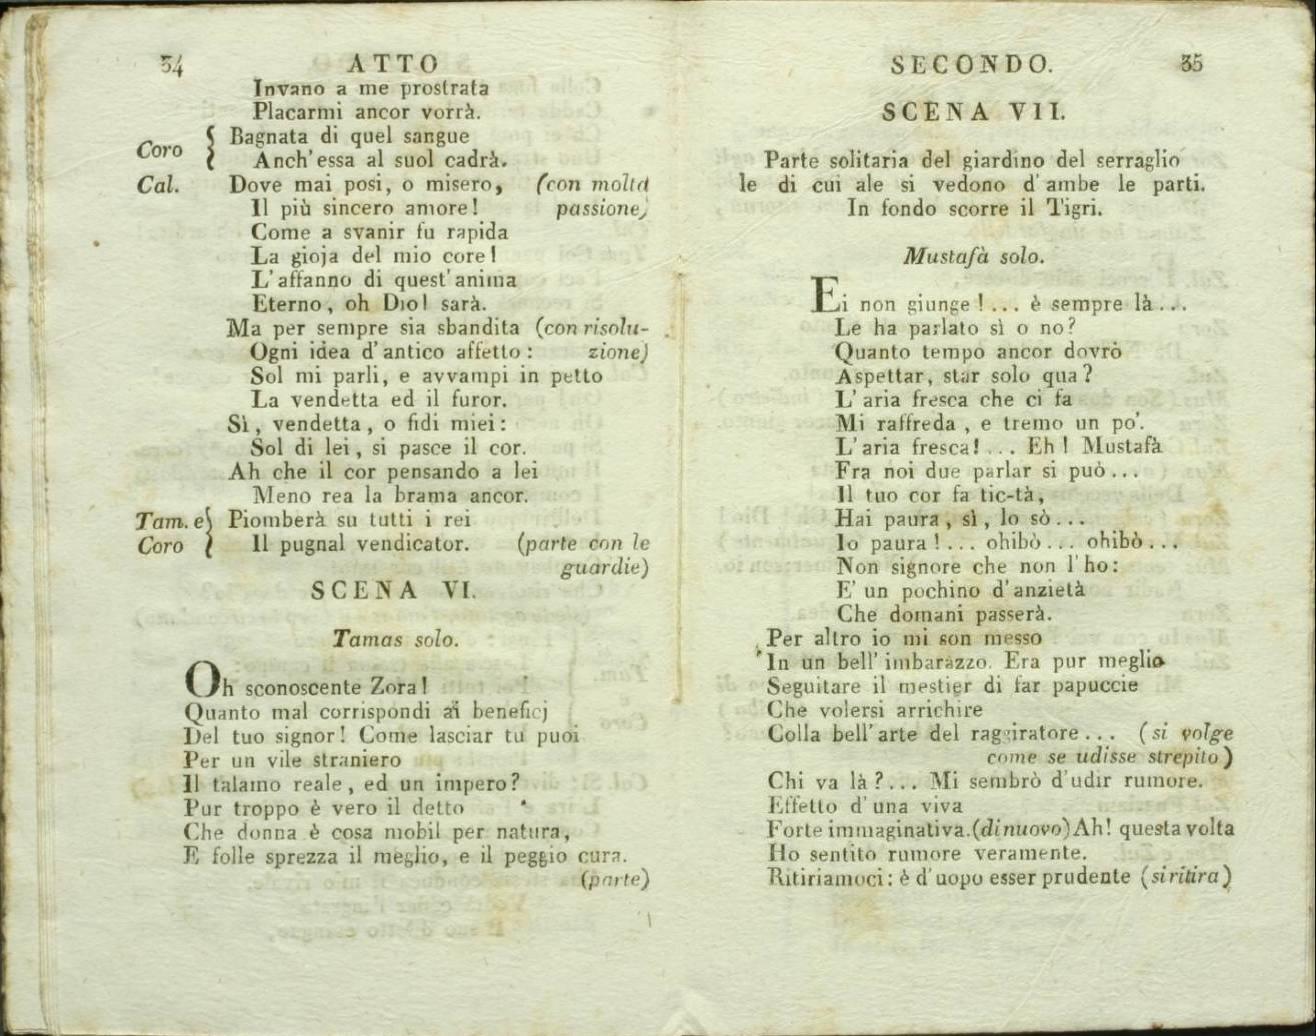 34 ATTO
Invano a me prostrata
Placarmi ancor vorrà.
Coro { Bagnata di quel sangue
Anch'essa al suol cadrà.
Cal. Dove mai posi, o misero, (con molta
Il più sincero amore! passione)
Come a svanir fu rapida
La gioja del mio core!
L'affanno di quest'anima
Eterno, oh Dio! sarà.
Ma per sempre sia sbandita (con risolu-
Ogni idea d'antico affetto: zione)
Sol mi parli, e avvampi in petto
La vendetta ed il furor.
Sì, vendetta, o fidi miei:
Sol di lei, si pasce il cor.
Ah che il cor pensando a lei
Meno rea la brama ancor.
Tam. e { Piomberà su tutti i rei
Coro Il pugnal vendicator. (parte con le
guardie)
SCENA VI.
Tamas solo.
Oh sconoscente Zora!
Quanto mal corrispondi ai beneficj
Del tuo signor! Come lasciar tu puoi
Per un vile straniero
Il talamo reale, ed un impero?
Pur troppo è vero il detto
Che donna è cosa mobil per natura,
E folle sprezza il meglio, e il peggio cura.
(parte)
SECONDO. 35
SCENA VII.
Parte solitaria del giardino del serraglio
le di cui ale si vedono d'ambe le parti.
In fondo scorre il Tigri.
Mustafà solo.
Ei non giunge!... è sempre là...
Le ha parlato sì o no?
Quanto tempo ancor dovrò
Aspettar, star solo qua?
L'aria fresca che ci fa
Mi raffreda, e tremo un po'.
L'aria fresca!... Eh! Mustafà
Fra noi due parlar si può...
Il tuo cor fa tic-tà,
Hai paura, sì, lo sò...
Io paura!... ohibò... ohibò...
Non signore che non l'ho:
E' un pochino d'anzietà
Che domani passerà.
Per altro io mi son messo
In un bell'imbarazzo. Era pur meglio
Seguitare il mestier di far papuccie
Che volersi arrichire
Colla bell'arte del raggiratore... (si volge
come se udisse strepito)
Chi va là?... Mi sembrò d'udir rumore.
Effetto d'una viva
Forte immaginativa. (di nuovo) Ah! questa volta
Ho sentito rumore veramente.
Ritiriamoci: è d'uopo esser prudente (si ritira)